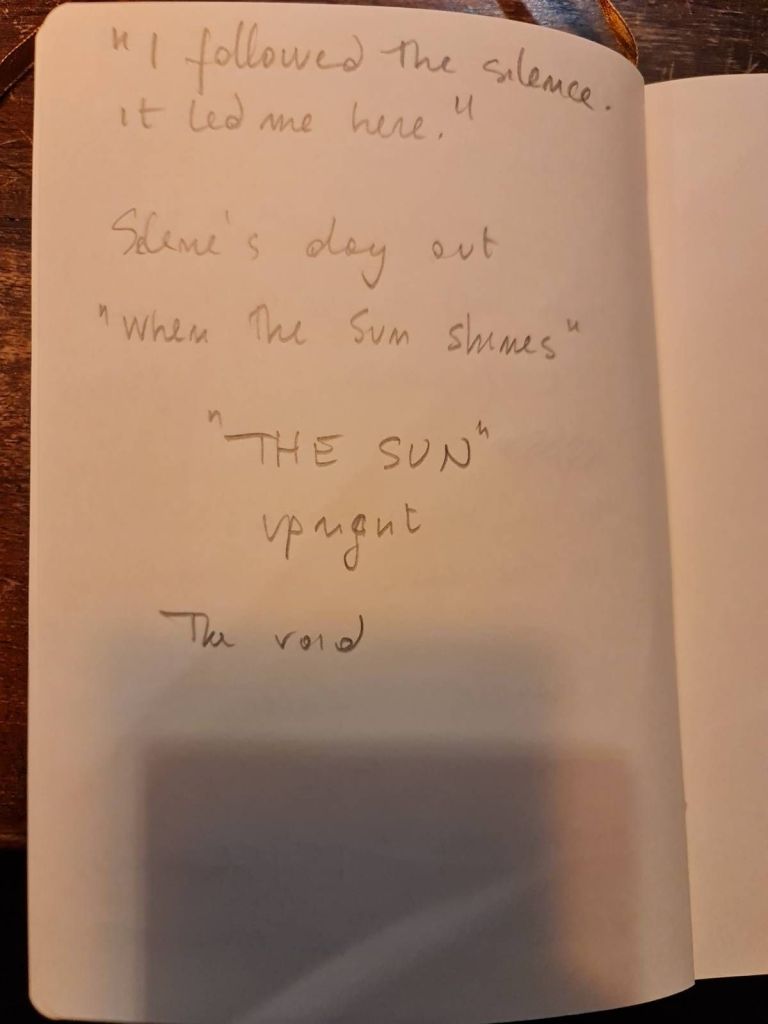 "I followed the silence.
it led me here."
Selene's day out
"When the Sun shines"
"THE SUN"
upright
The void